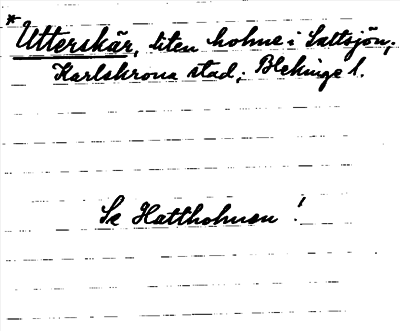 * Utterskär, liten holme i Saltsjön;
Karlskrona stad; Blekinge l.
Se Hattholmen !